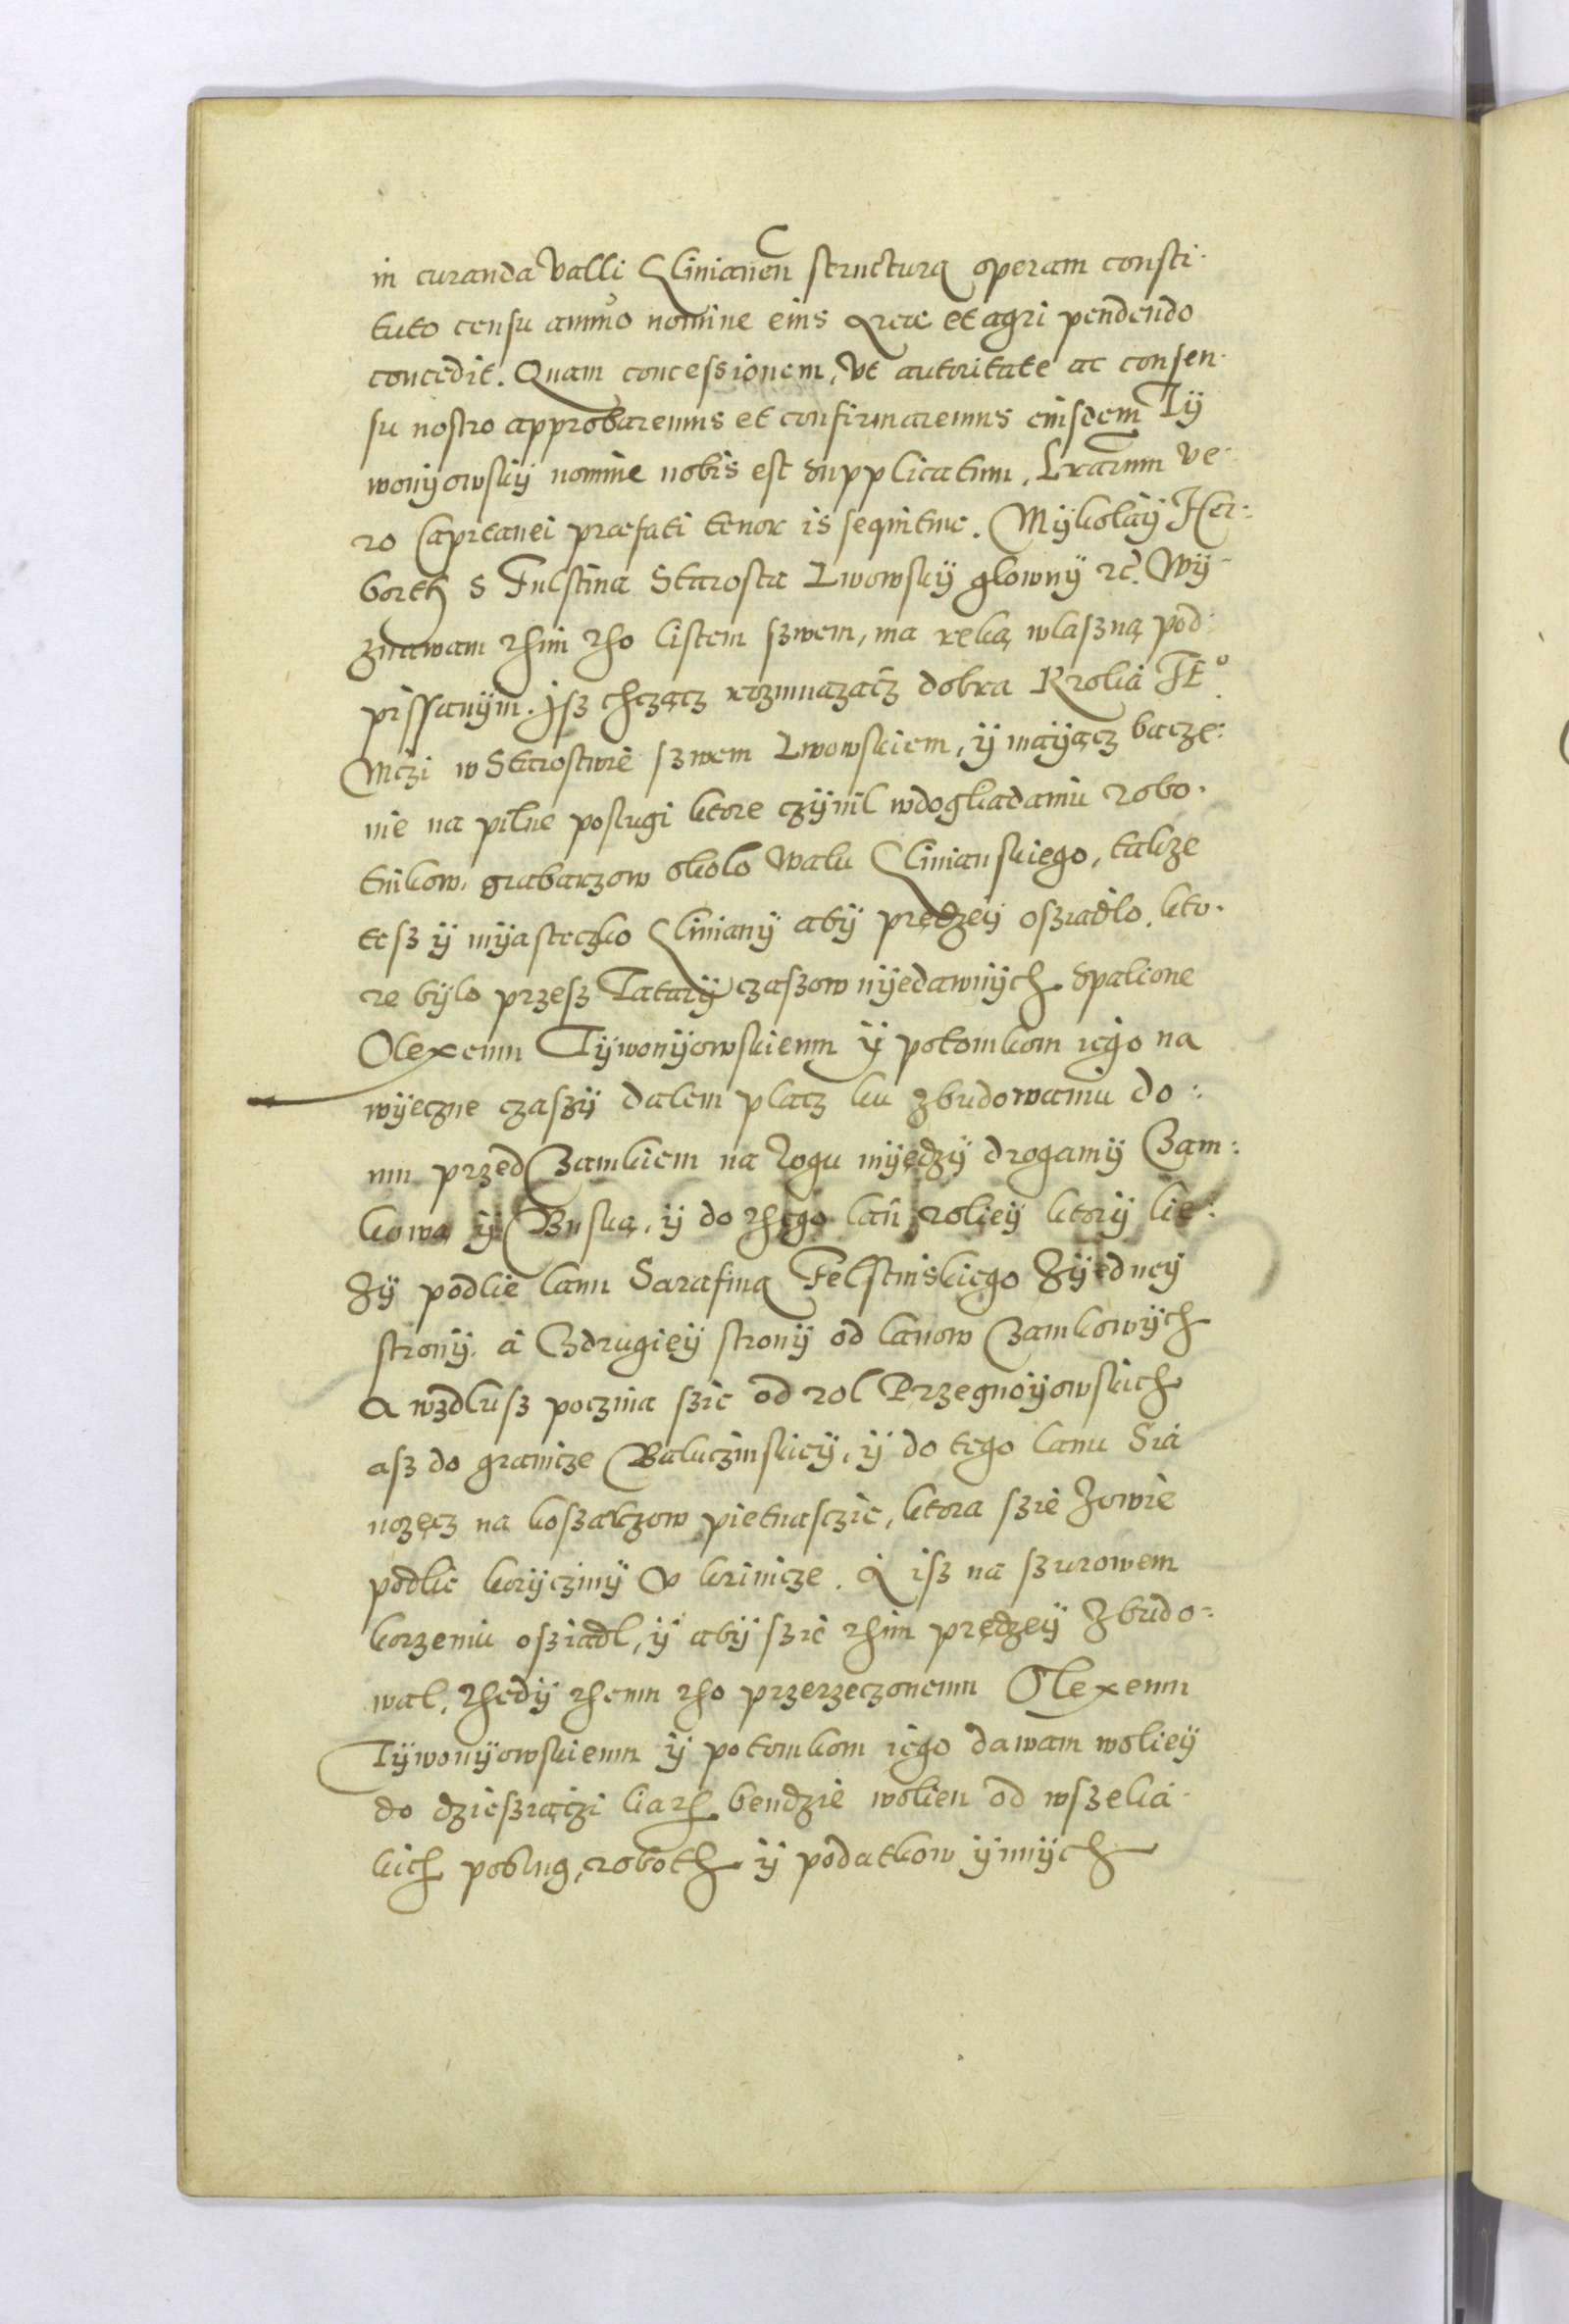 in curanda Valli Glinianen structura operam consti-
tuto censu annuo nomine eius areae et agri pendendo
concedit. Quam concessionem, vt autoritate ac consen-
su nostro approbaremus et confirmaremus eiusdem Ty
wonyowsky nomine nobis est supplicatum. Lrarum ve-
ro Capitanei praefati tenor is sequitur. Mykołay Her-
borth s Fulstina Starosta Lwowsky głowny rc. Wy-
znawam thim tho listem szwem, ma ręką właszną pod-
pissanym. Isz chcząc rozmnazacz dobra Krolia JE°
Mczi w Starostwie szwem Lwowskiem, y mayącz bacze-
nie na pilne posługi ktore czynil w dogliadaniu robo-
tnikow, grabarzow około wału Glinianskiego, takze
tesz y myasteczko Gliniany aby prędzey osziadło, kto-
re było przesz Tatary czaszow nyedawnych spalone
Olexemu Tywonyowskiemu y potomkom iego na
wyeczne czaszy dałem placz ku zbudowaniu do-
mu przed Zamkiem na rogu myędzy drogamy Zam-
kową y Buską, y do thego łan roliey ktory lie-
zy podlie łanu Sarafina Felstinskiego z yedney
strony, a z drugiey strony od łanow Zamkowych
A wzdłusz poczina szie od rol Przegnoyowskich
asz do granicze Bałuczinskiey, y do tego łanu Sia
nozęcz na koszarzow pietnasczie, ktora szie zowie
podlie koryczmy w krinicze. A isz na szurowem
korzeniu osziadł, y aby szie thim prędzey zbudo-
wał, thedy themu tho przerzeczonemu Olexemu
Tywonyowskiemu y potomkom iego dawam woliey
do dziesziączi liath bendzie wolien od wszelia-
kich posług, roboth y podatkow ynnych